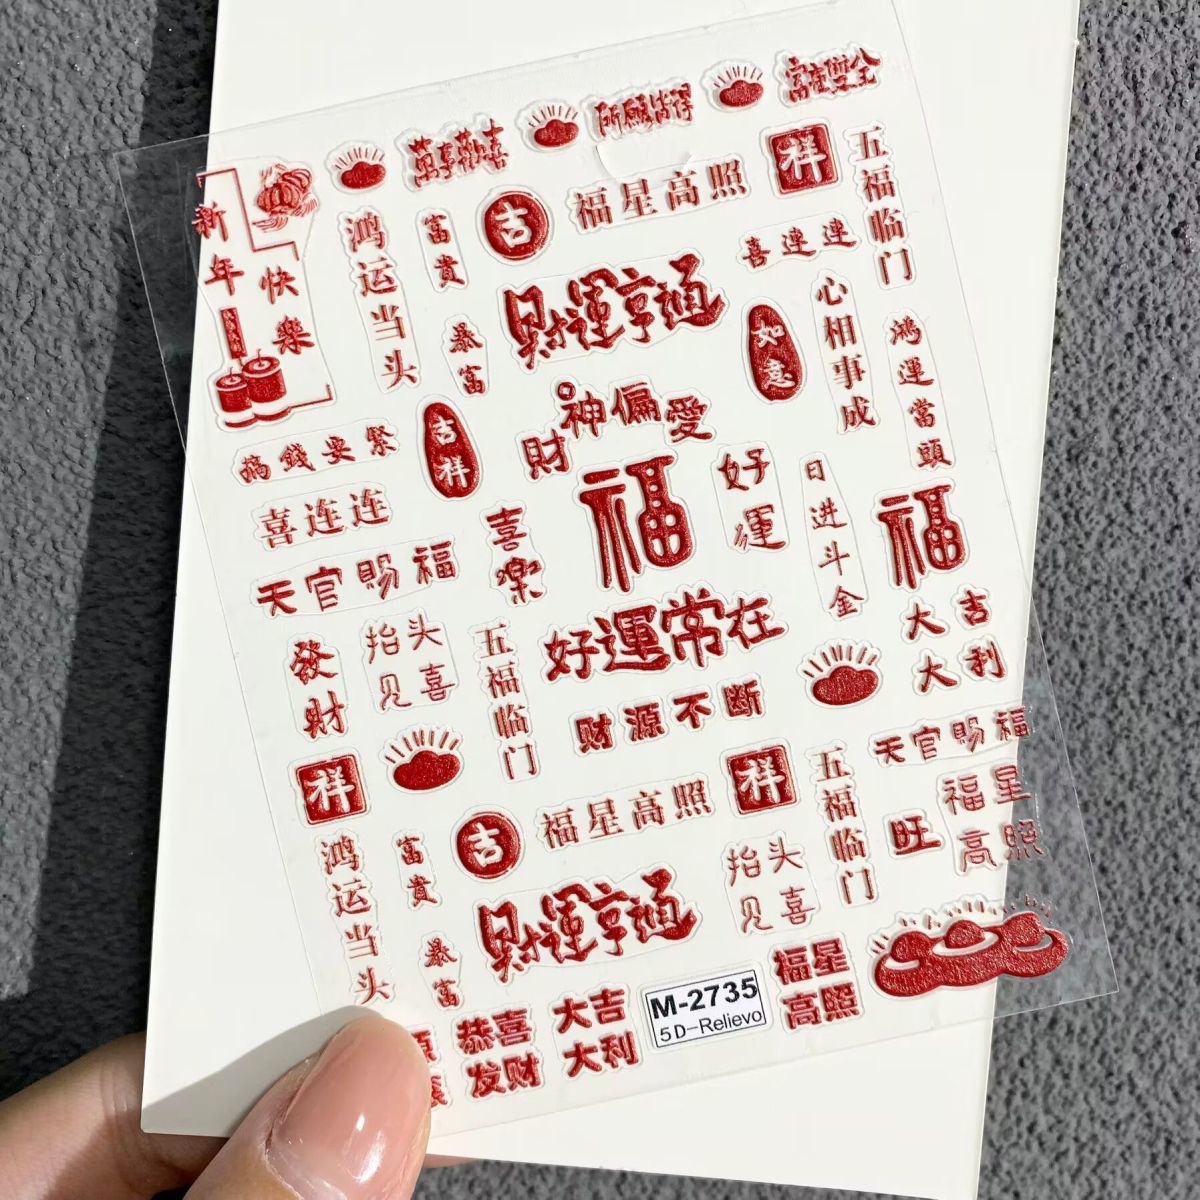 萬事歡喜
所願皆得
富在雙全
新年
快樂
鸿运当头
富貴
吉
福星高照
祥
五福临门
喜連連
財運亨通
暴富
如意
心相事成
鴻運當頭
搞錢要緊
吉祥
財神偏愛
喜连连
喜樂
福
好運
日进斗金
福
天官賜福
抬头
见喜
五福临门
好運常在
大吉
大利
發財
财源不断
天官賜福
祥
福星高照
祥
五福临门
旺
福星
高照
鸿运当头
富貴
吉
抬头
见喜
財運亨通
暴富
恭喜
发财
大吉
大利
M-2735
5D-Relievo
福星
高照